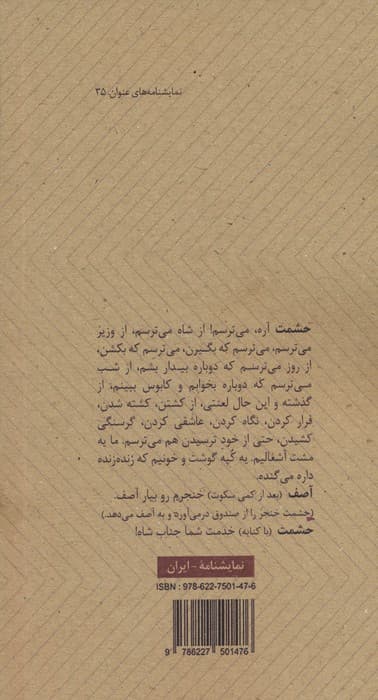 نمایشنامه‌های عنوان: ۳۵
حشمت آره، می‌ترسم! از شاه می‌ترسم، از وزیر
می‌ترسم، می‌ترسم که بگیرن، می‌ترسم که بکشن،
از روز می‌ترسم که دوباره بیدار بشم، از شب
می‌ترسم که دوباره بخوابم و کابوس ببینم؛ از
گذشته و این حال لعنتی، از کشتن، کشته شدن،
فرار کردن، نگاه کردن، عاشقی کردن، گرسنگی
کشیدن، حتی از خود ترسیدن هم می‌ترسم. ما یه
مشت آشغالیم. یه کُپه گوشت و خونیم که زنده‌زنده
داره می‌گنده.
آصف (بعد از کمی سکوت) خنجرم رو بیار آصف.
(حشمت خنجر را از صندوق درمی‌آورد و به آصف می‌دهد.)
حشمت (با کنایه) خدمت شما جناب شاه!
نمایشنامهٔ - ایران
ISBN : 978-622-7501-47-6
9 786227 501476